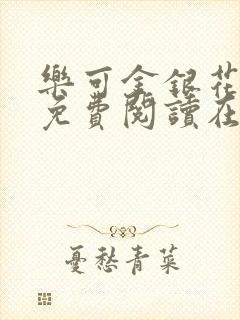 樂可金銀花
免費閱讀在
憂愁青菜